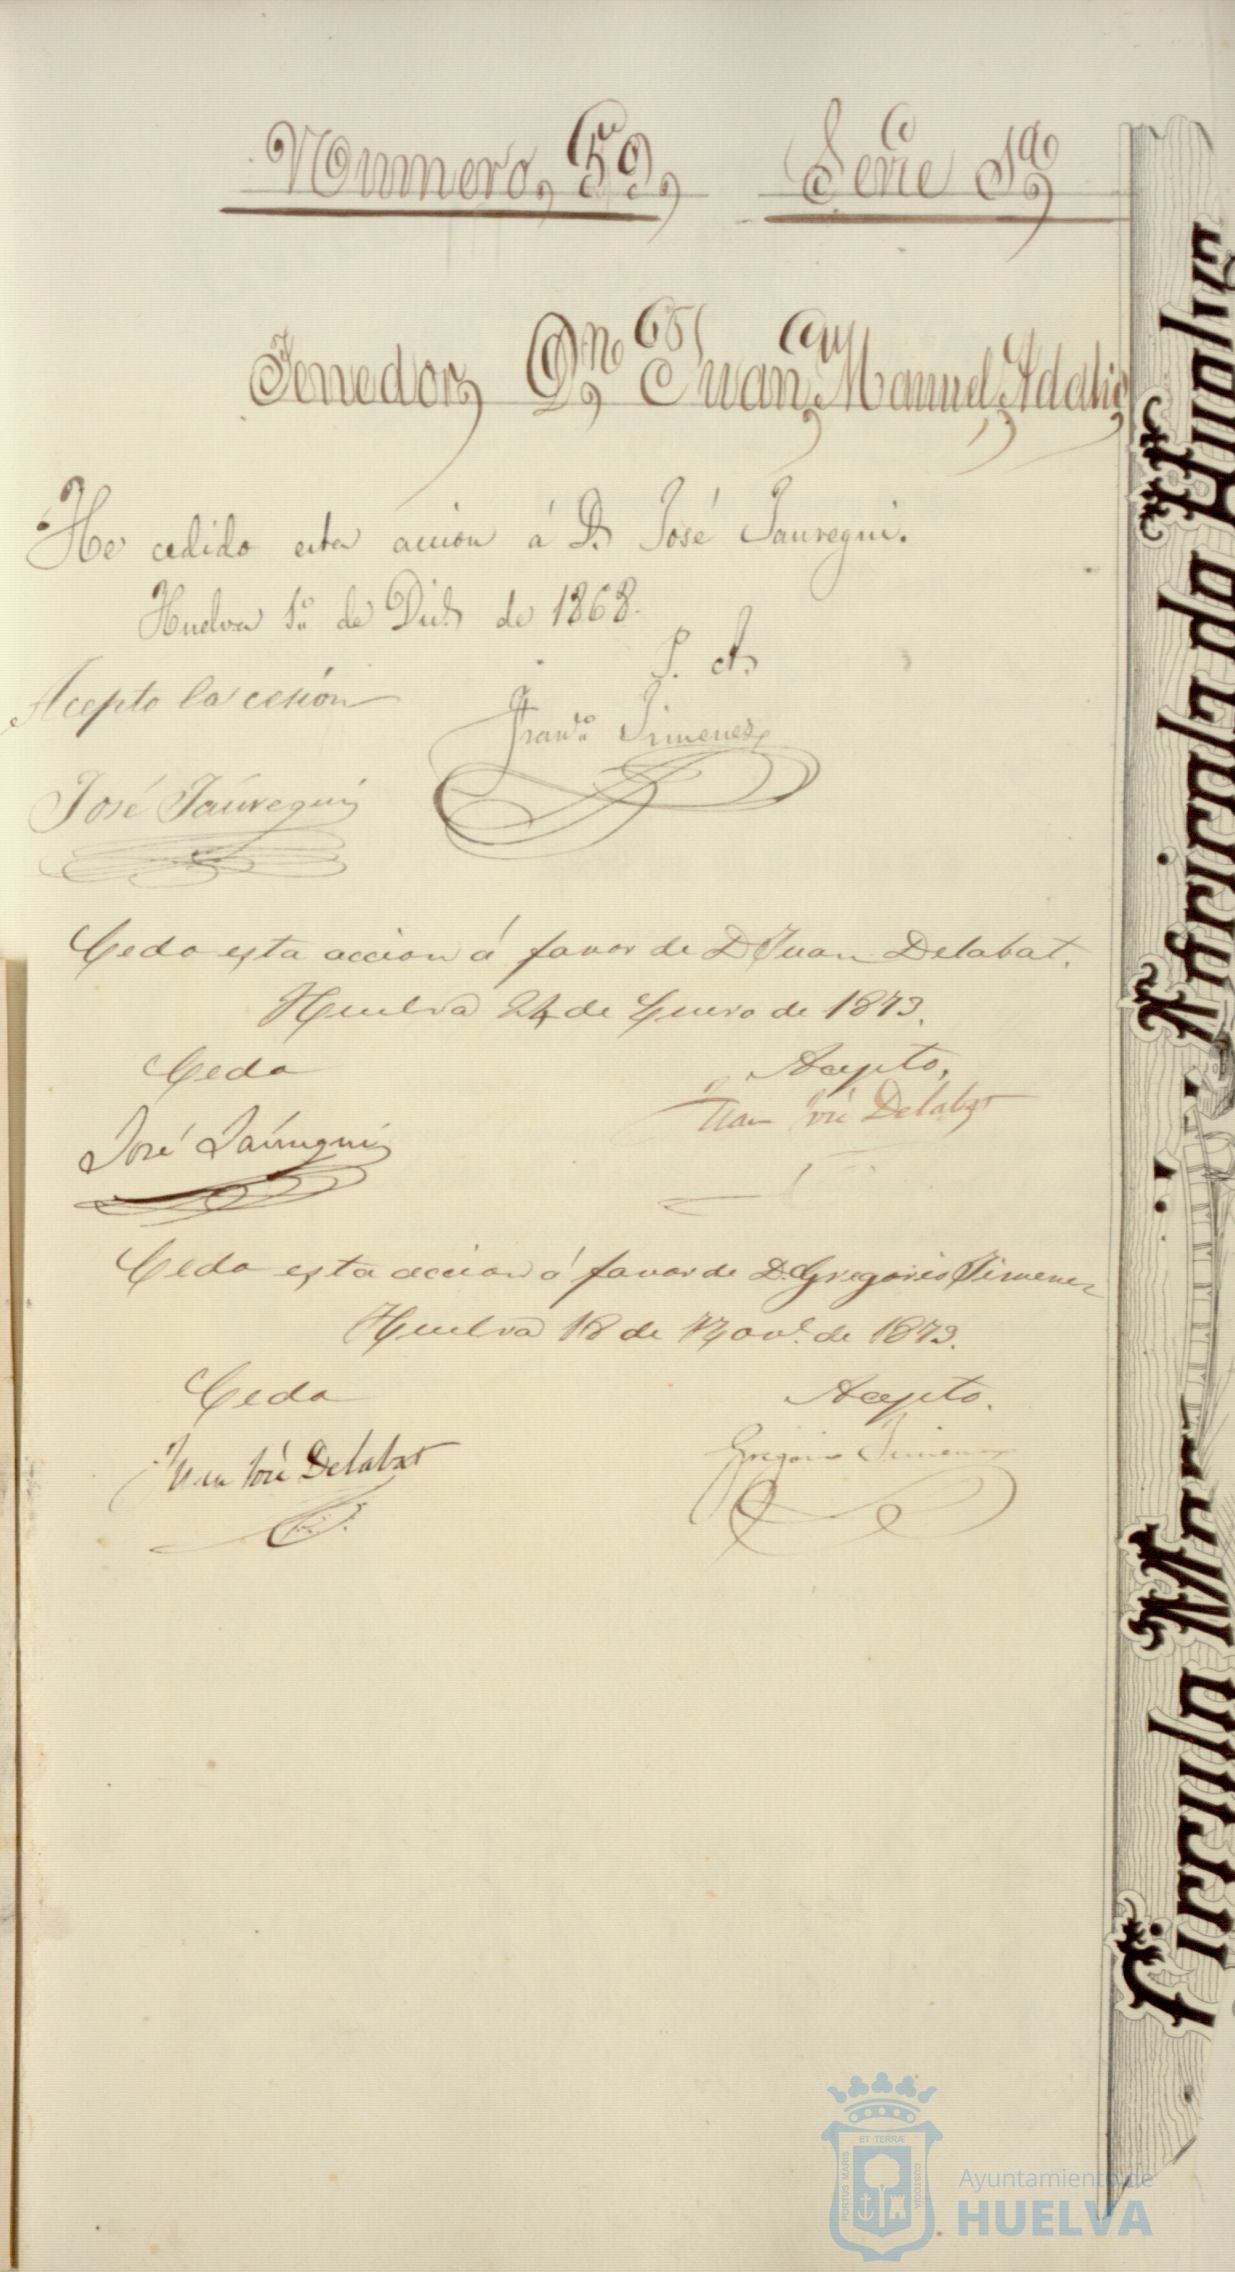 Numero, 59, Serie 1ª
Tenedor, Dn Juan Manuel, Adalid
He cedido esta accion á D. José Jauregui.
Huelva 1º de Dic.e de 1868.
P. A.
Acepto la cesión
Franco Jimenez
José Jáuregui
Cedo esta accion á favor de D Juan Delabat.
Huelva 24 de Enero de 1873.
Cedo Acepto,
José Jáuregui Juan José Delabat
Cedo esta accion á favor de D. Gregorio Jimenez
Huelva 18 de Nove. de 1873.
Cedo Acepto.
Juan José Delabat Gregorio Jimenez
PORTUS MARIS ET TERRÆ CUSTODIA
Ayuntamiento de
HUELVA